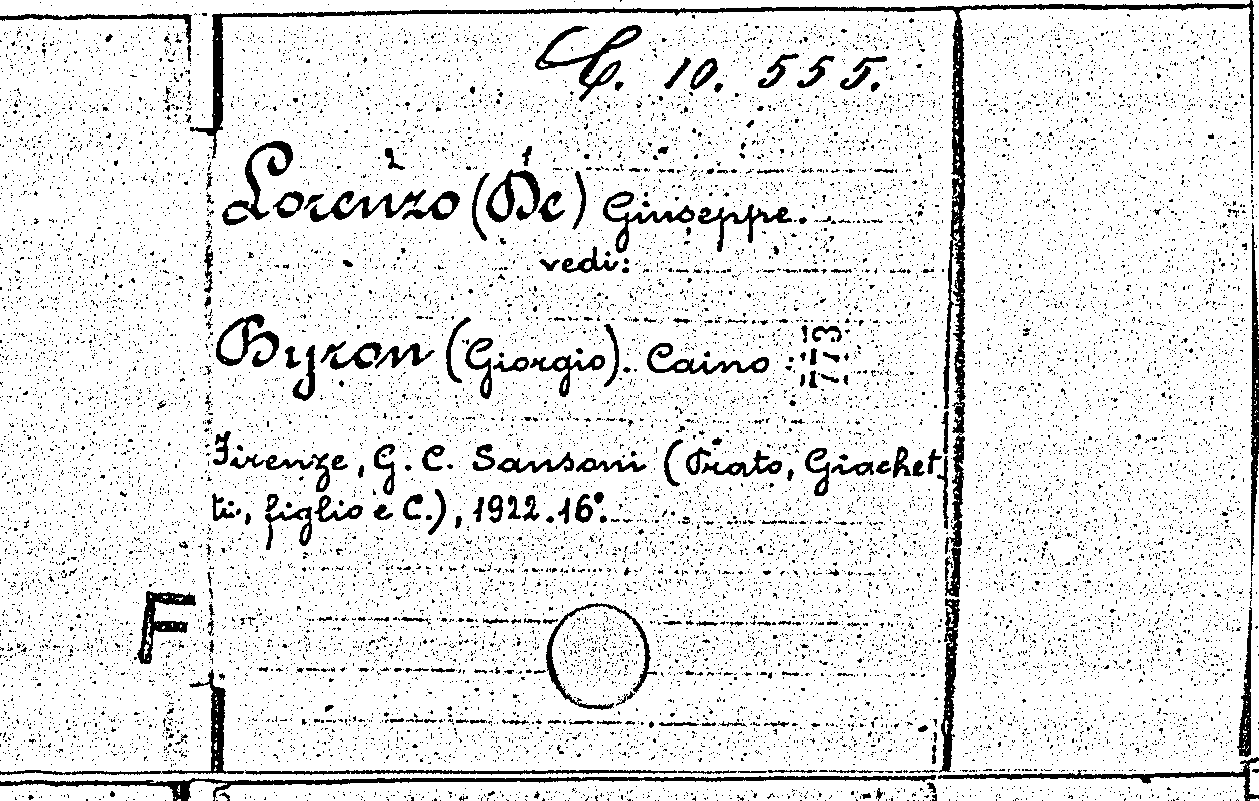 C. 10. 555.
2 1
Lorenzo (De) Giuseppe.
vedi:
Byron (Giorgio). Caino :
Firenze, G. C. Sansoni (Prato, Giachet
ti, figlio e C.), 1922. 16°.
F